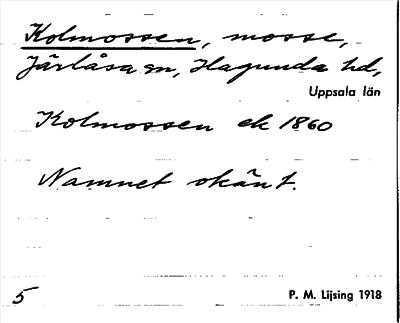 Kolmossen, mosse,
Järlåsa sn, Hagunda hd,
Uppsala län
Kolmossen ek 1860
Namnet okänt.
5
P. M. Lijsing 1918